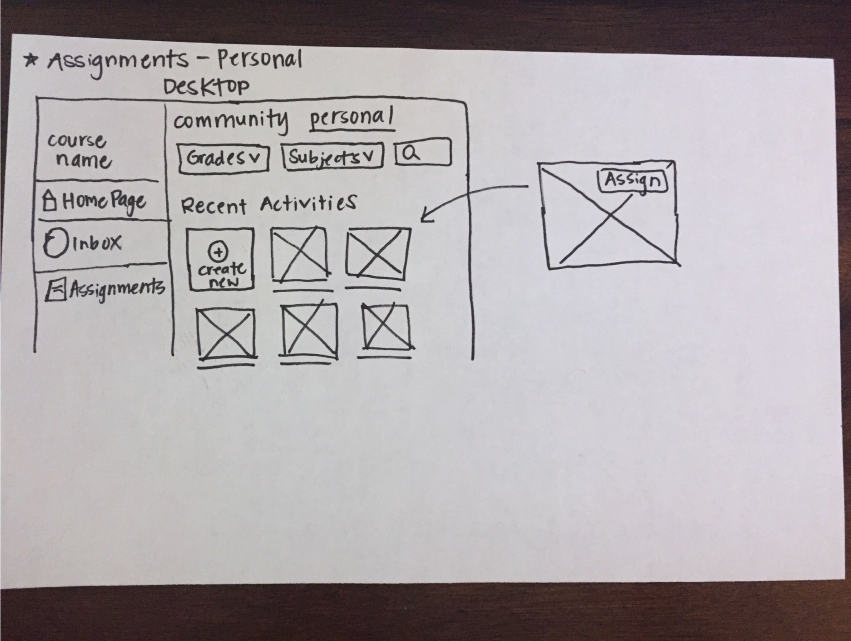 * Assignments - Personal
Desktop
course
name
Home Page
Inbox
Assignments
community personal
Grades v
Subjects v
Recent Activities
+
create
new
Assign